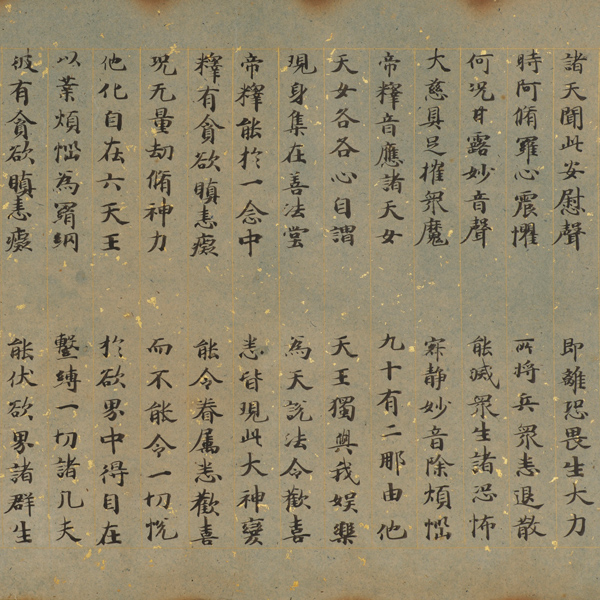 諸天聞此安慰聲　即離恐畏生大力
時阿脩羅心震懼　所將兵衆悉退散
何況甘露妙音聲　能滅衆生諸恐怖
大慈具足摧衆魔　寂静妙音除煩惱
帝釋音應諸天女　九十有二那由他
天女各各心自謂　天王獨與我娱樂
現身集在善法堂　為天説法令歡喜
帝釋能於一念中　悉皆現此大神變
釋有貪欲瞋恚癡　能令眷属悉歡喜
況无量劫脩神力　而不能令一切悦
他化自在六天王　於欲界中得自在
以業煩惱為羂網　繫縛一切諸凡夫
彼有貪欲瞋恚癡　能伏欲界諸群生